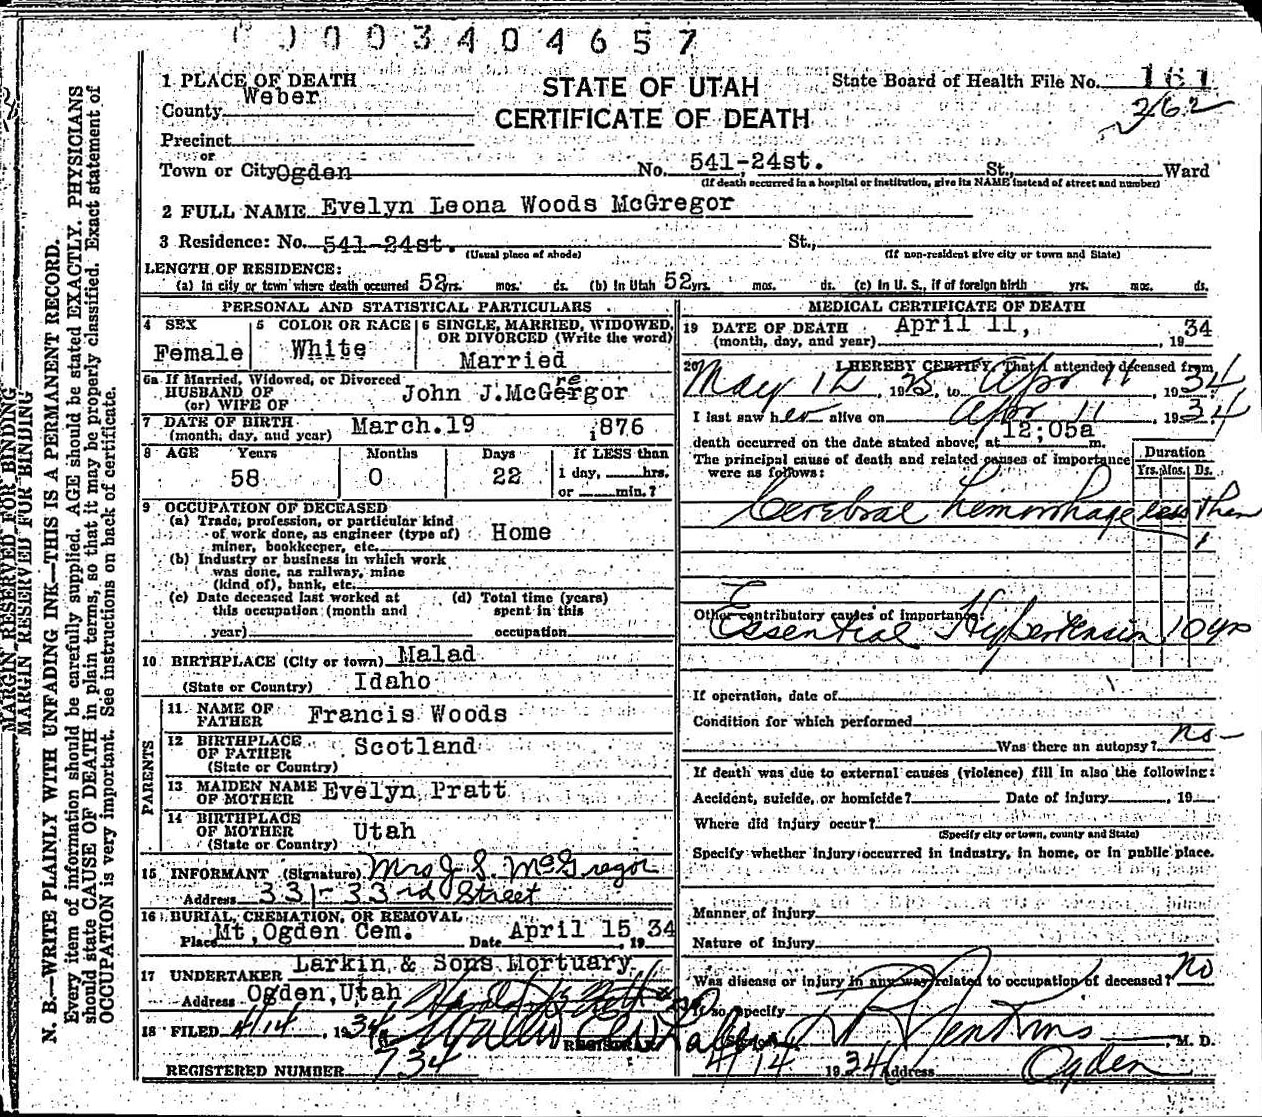 0003404657
1 PLACE OF DEATH
STATE OF UTAH
CERTIFICATE OF DEATH
State Board of Health File No. 161
362
County Weber
Precinct
or
Town or City Ogden No. 541-24st. St., Ward
(If death occurred in a hospital or institution, give its NAME instead of street and number)
2 FULL NAME Evelyn Leona Woods McGregor
3 Residence: No. 541-24st. St.,
(Usual place of abode) (If non-resident give city or town and State)
LENGTH OF RESIDENCE:
(a) In city or town where death occurred 52 yrs. mos. ds. (b) In Utah 52 yrs. mos. ds. (c) In U. S., if of foreign birth yrs. mos. ds.
PERSONAL AND STATISTICAL PARTICULARS
4 SEX Female
5 COLOR OR RACE White
6 SINGLE, MARRIED, WIDOWED, OR DIVORCED (Write the word) Married
6a If Married, Widowed, or Divorced
HUSBAND OF
(or) WIFE OF John J.McGregor
7 DATE OF BIRTH (month, day, and year) March.19 1876
8 AGE Years 58 Months 0 Days 22 If LESS than 1 day, hrs. or min.?
9 OCCUPATION OF DECEASED
(a) Trade, profession, or particular kind
of work done, as engineer (type of) Home
miner, bookkeeper, etc.
(b) Industry or business in which work
was done, as railway, mine
(kind of), bank, etc.
(c) Date deceased last worked at
this occupation (month and
year)
(d) Total time (years)
spent in this
occupation
10 BIRTHPLACE (City or town) Malad
(State or Country) Idaho
PARENTS
11 NAME OF FATHER Francis Woods
12 BIRTHPLACE OF FATHER (State or Country) Scotland
13 MAIDEN NAME OF MOTHER Evelyn Pratt
14 BIRTHPLACE OF MOTHER (State or Country) Utah
15 INFORMANT (Signature) Mrs J. S. McGregor
Address 331-33rd Street
16 BURIAL, CREMATION, OR REMOVAL
Place Mt, Ogden Cem. Date April 15, 1934
17 UNDERTAKER Larkin & Sons Mortuary
Address Ogden,Utah
18 FILED 4/14, 1934
REGISTRAR
REGISTERED NUMBER 734
MEDICAL CERTIFICATE OF DEATH
19 DATE OF DEATH (month, day, and year) April 11, 1934
20 I HEREBY CERTIFY, That I attended deceased from
May 12, 1925, to Apr 11, 1934
I last saw her alive on Apr 11 1934
death occurred on the date stated above, at 12;05a m.
The principal cause of death and related causes of importance
were as follows:
Duration
Yrs. Mos. Ds.
Cerebral hemorrhage less than
1
Other contributory causes of importance:
Essential Hypertension 10 yrs
If operation, date of
Condition for which performed
Was there an autopsy? no
If death was due to external causes (violence) fill in also the following:
Accident, suicide, or homicide? Date of injury , 19
Where did injury occur?
(Specify city or town, county and State)
Specify whether injury occurred in industry, in home, or in public place.
Manner of Injury
Nature of Injury
Was disease or injury in any way related to occupation of deceased? no
If so, specify
Jenkins M. D.
4/14 1934 Address Ogden
MARGIN RESERVED FOR BINDING
MARGIN RESERVED FOR BINDING
N. B.—WRITE PLAINLY WITH UNFADING INK—THIS IS A PERMANENT RECORD.
Every item of information should be carefully supplied. AGE should be stated EXACTLY. PHYSICIANS
should state CAUSE OF DEATH in plain terms, so that it may be properly classified. Exact statement of
OCCUPATION is very important. See instructions on back of certificate.